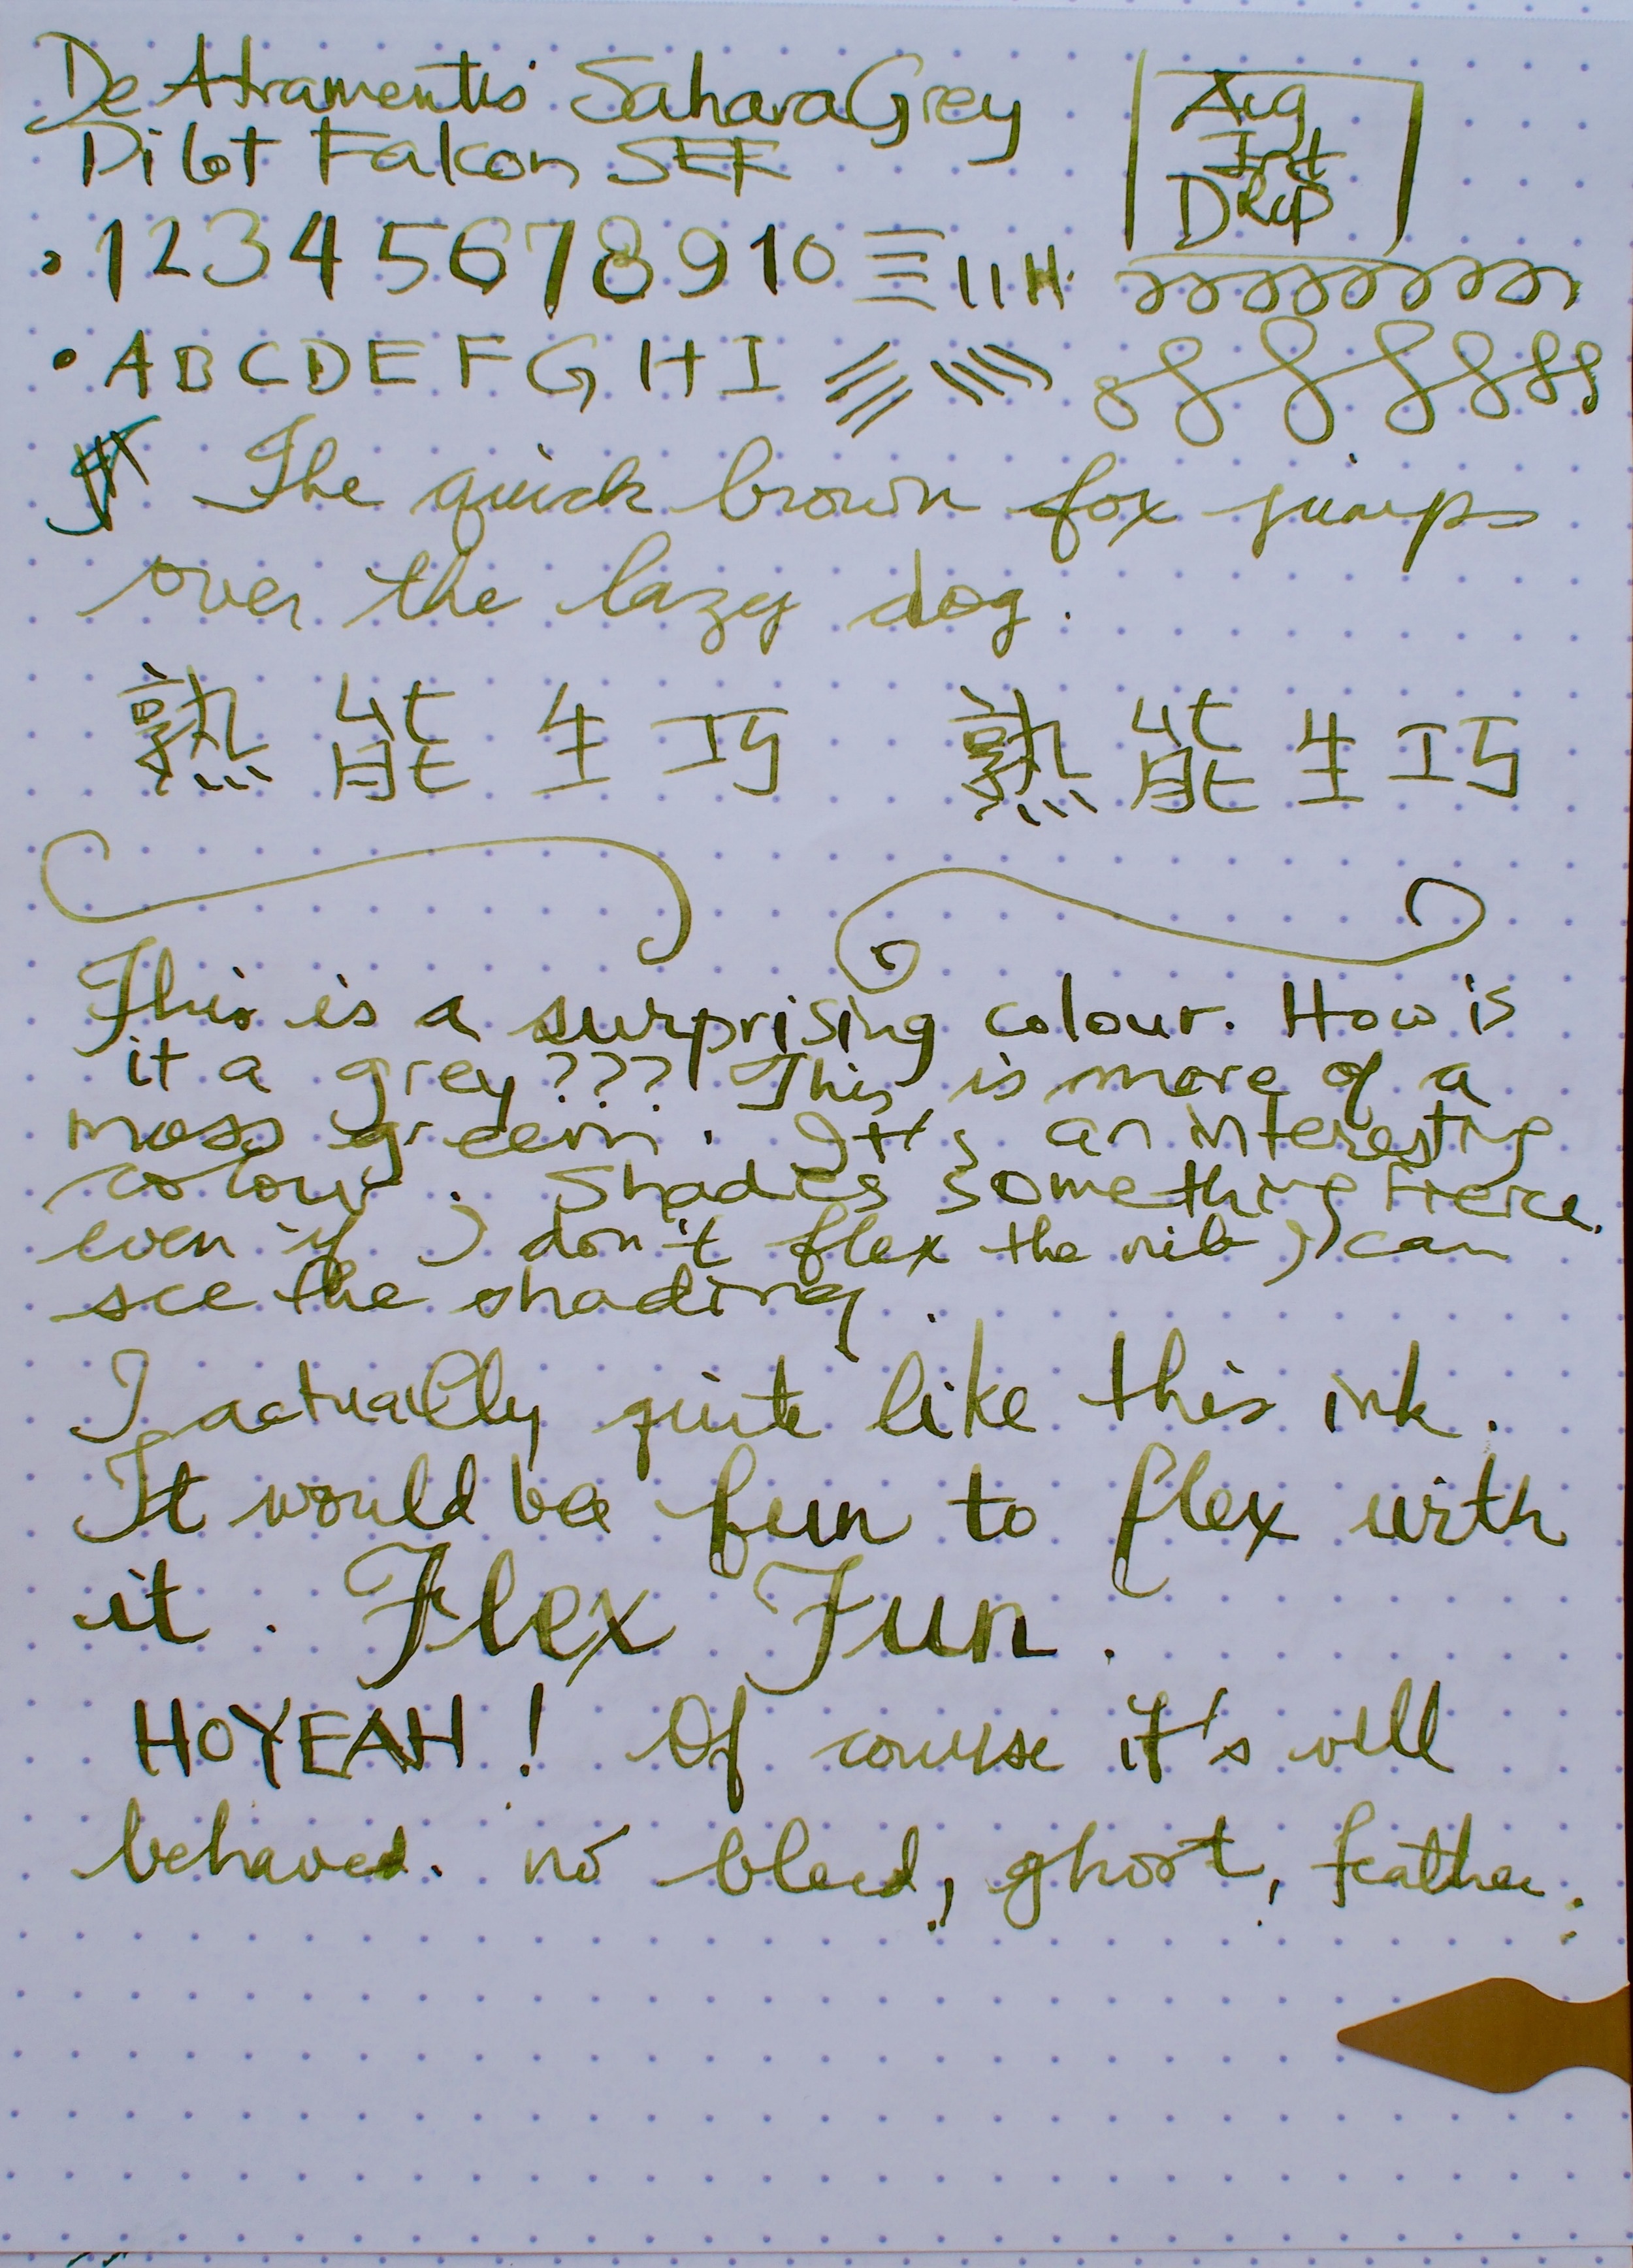 De Atramentis Sahara Grey
Pilot Falcon SEF
Aug
Ink
Drop
1 2 3 4 5 6 7 8 9 10
A B C D E F G H I
The quick brown fox jumps
over the lazy dog.
熟能生巧 熟能生巧
This is a surprising colour. How is
it a grey??? This is more of a
moss green. It's an interesting
colour. Shades something fierce.
even if I don't flex the nib I can
see the shading.
I actually quite like this ink.
It would be fun to flex with
it. Flex Fun.
HOYEAH! Of course it's well
behaved. no bleed, ghost, feather.